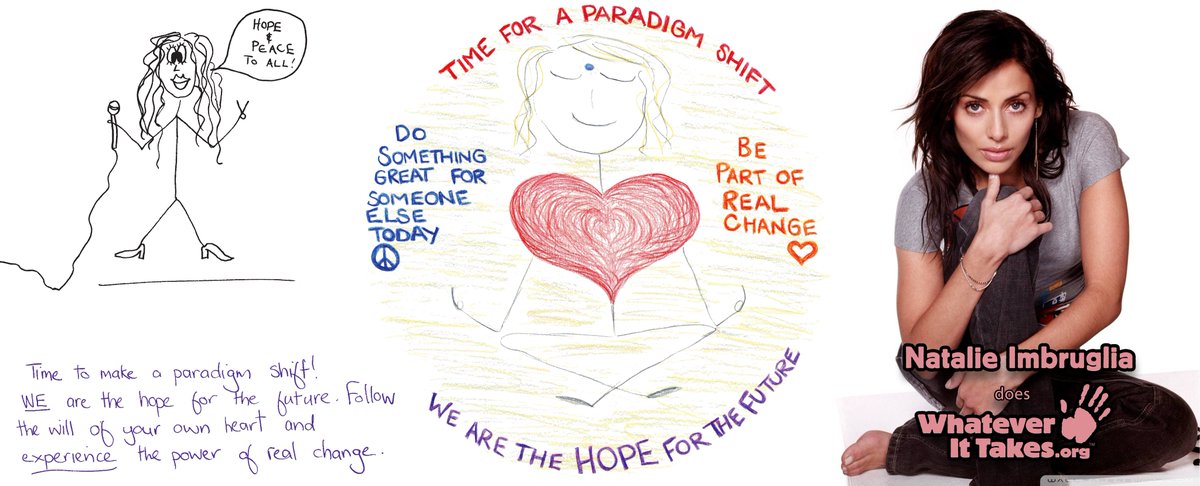 HOPE
&
PEACE
TO ALL!
Time to make a paradigm shift!
WE are the hope for the future. Follow
the will of your own heart and
experience the power of real change.
TIME FOR A PARADIGM SHIFT
DO
SOMETHING
GREAT FOR
SOMEONE
ELSE
TODAY
BE
PART OF
REAL
CHANGE
WE ARE THE HOPE FOR THE FUTURE
Natalie Imbruglia
does
Whatever
It Takes.org
TM